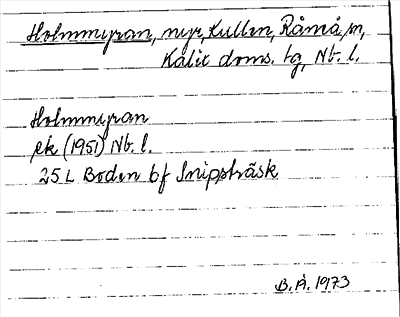 Holmmyran, myr, Kullen, Råmå, m,
Kalix doms. lg, Nb. l.
Holmmyran
ek (1951) Nb. l.
25 L Boden bf Snippträsk
B. Å. 1973